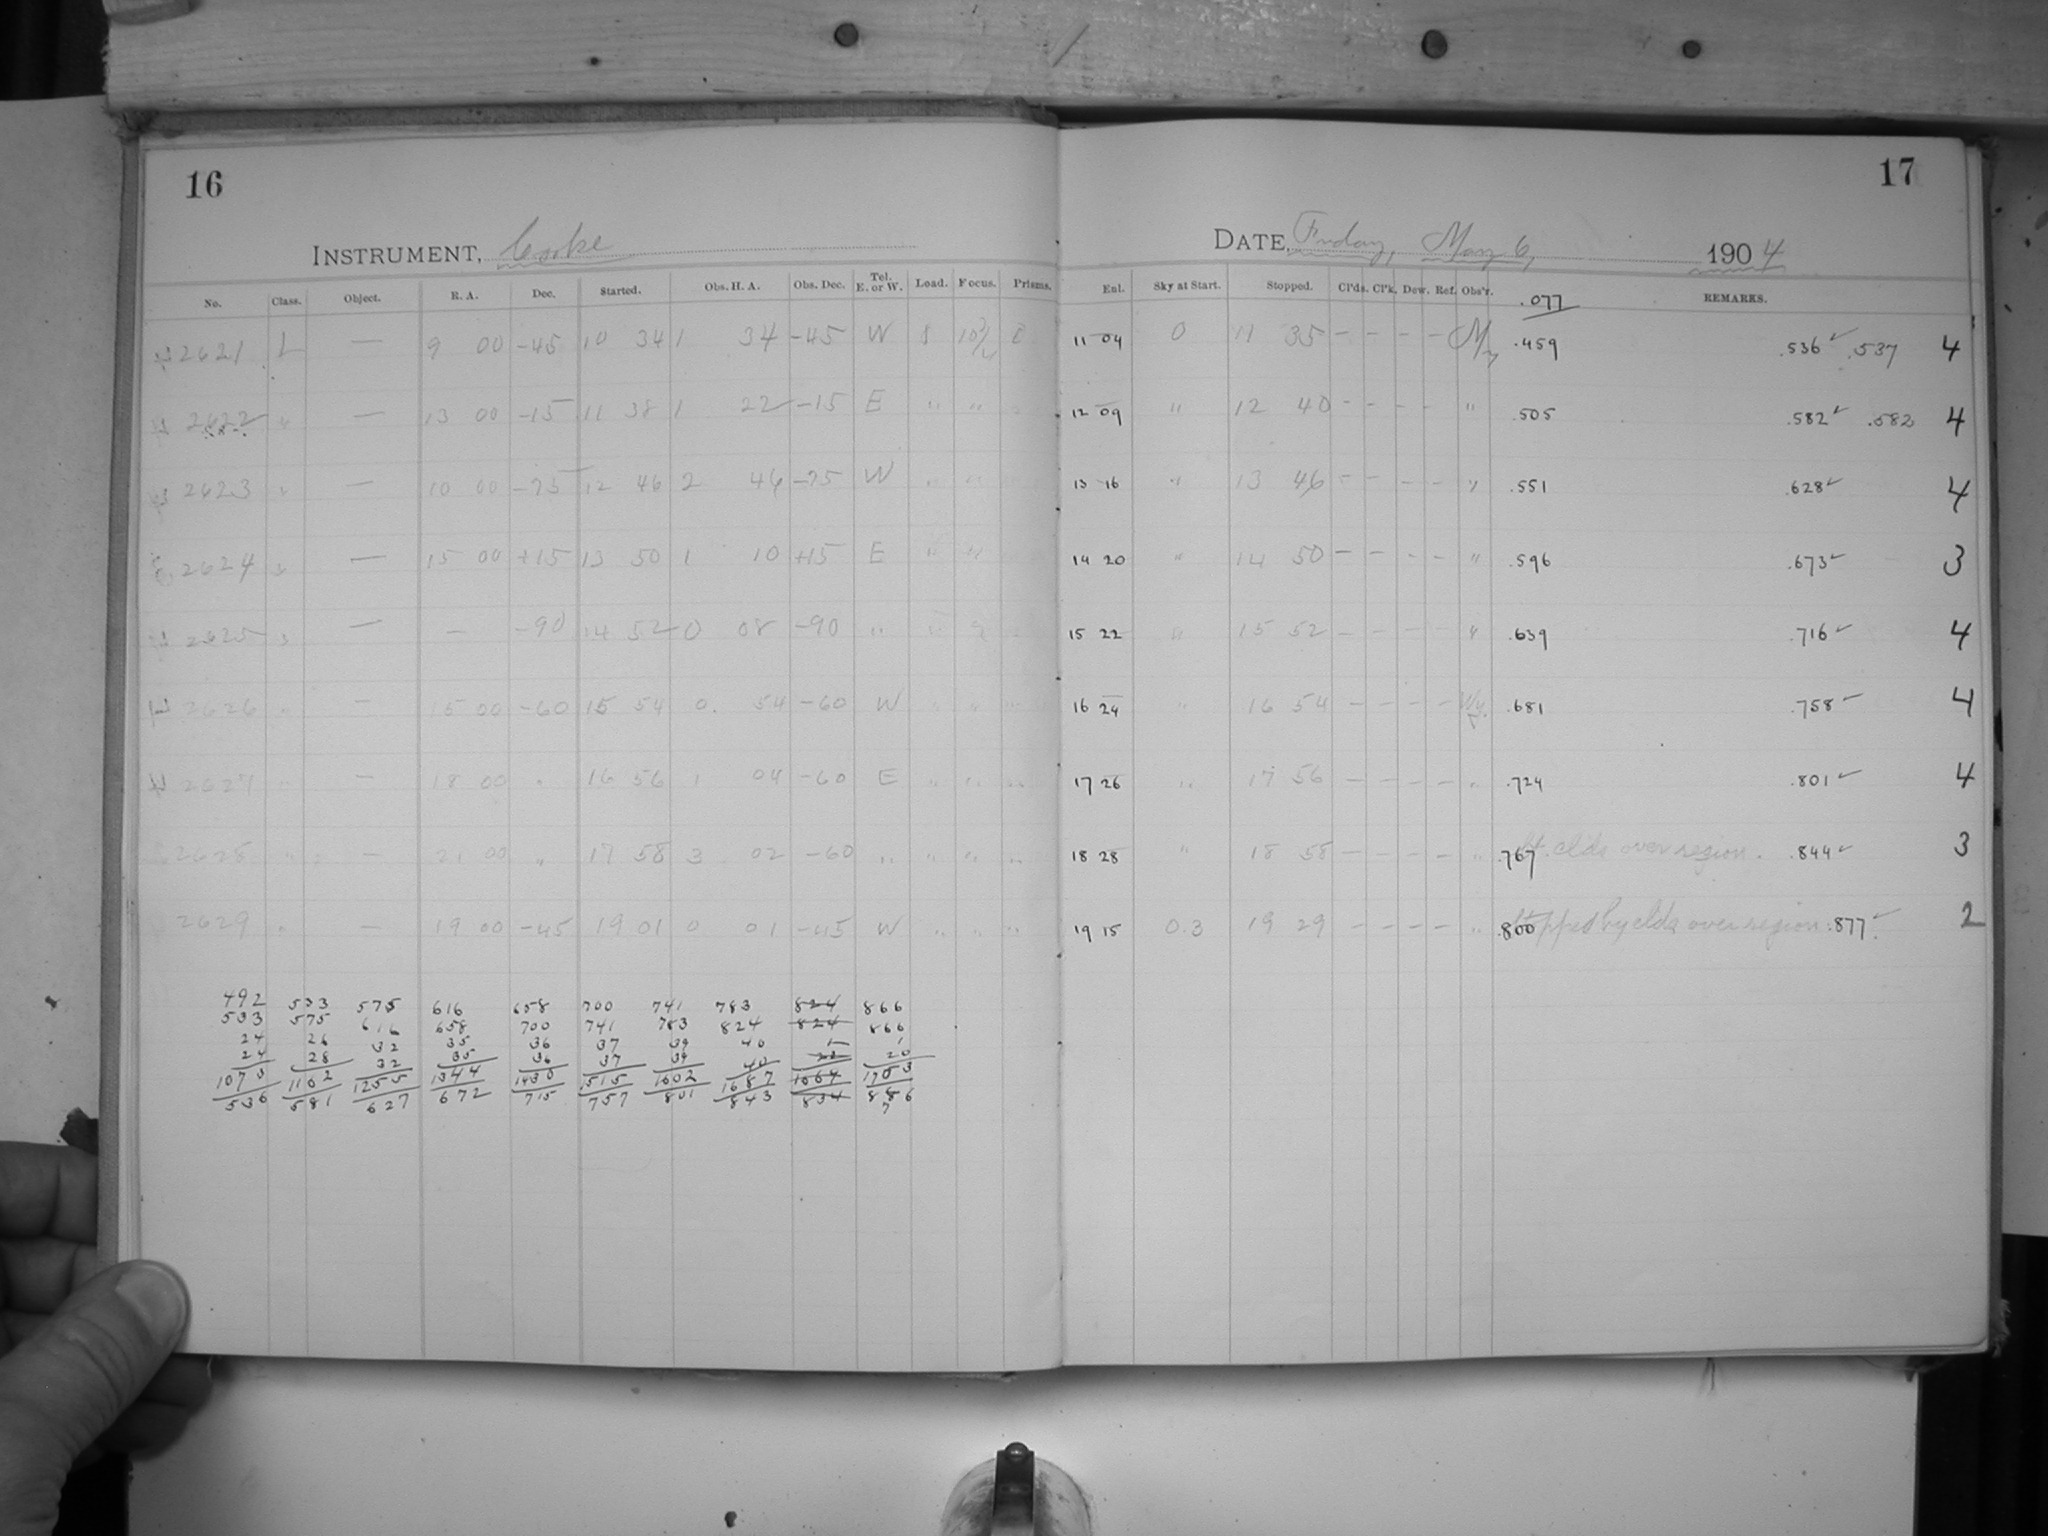 16
17
INSTRUMENT, Cooke
DATE, Friday, May 6, 1904
No. Class. Object. R. A. Dec. Started. Obs. H. A. Obs. Dec. Tel. E. or W. Load. Focus. Prisms. Enl. Sky at Start. Stopped. Cl'ds. Cl'k. Dew. Ref. Obs'r. .077 REMARKS.
2621 L — 9 00 -45 10 34 1 34 -45 W 8 0 11 04 0 11 35 — — — — .459 .536 ✓ .537 4
2622 " — 13 00 -15 11 38 1 22 -15 E " " 12 09 " 12 40 - - - - " .505 .582 ✓ .582 4
2623 " — 10 00 -75 12 46 2 46 -75 W " " 13 16 " 13 46 - - - - " .551 .628 ✓ 4
2624 " — 15 00 +15 13 50 1 10 +15 E " " 14 20 " 14 50 — — — — " .596 .673 ✓ 3
2625 " — — -90 14 52 0 08 -90 " " 15 22 " 15 52 — — — — " .639 .716 ✓ 4
2626 " — 15 00 -60 15 54 0. 54 -60 W " " " 16 24 " 16 54 — — — — .681 .758 ✓ 4
2627 " — 18 00 " 16 56 1 04 -60 E " " " 17 26 " 17 56 — — — — " .724 .801 ✓ 4
2628 " — 21 00 " 17 58 3 02 -60 " " " " 18 28 " 18 58 — — — — " .767 clds over region. .844 ✓ 3
2629 " — 19 00 -45 19 01 0 01 -45 W " " " 19 15 0.3 19 29 — — — — " .800 Stopped by clds over region. .877 ✓ 2
492 533 575 616 658 700 741 783 824 866
533 575 616 658 700 741 783 824 824 866
24 26 32 35 36 37 39 40 1 1
24 28 32 35 36 37 39 40 20
1073 1162 1255 1344 1430 1515 1602 1687 1664 1753
536 581 627 672 715 757 801 843 834 886
7